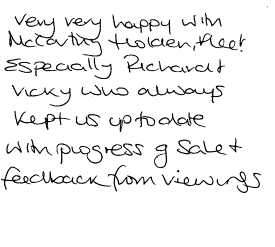 very very happy with
McCarthy Holden, Fleet
Especially Richard &
Vicky who always
kept us up to date
with progress of Sale &
feedback from viewings